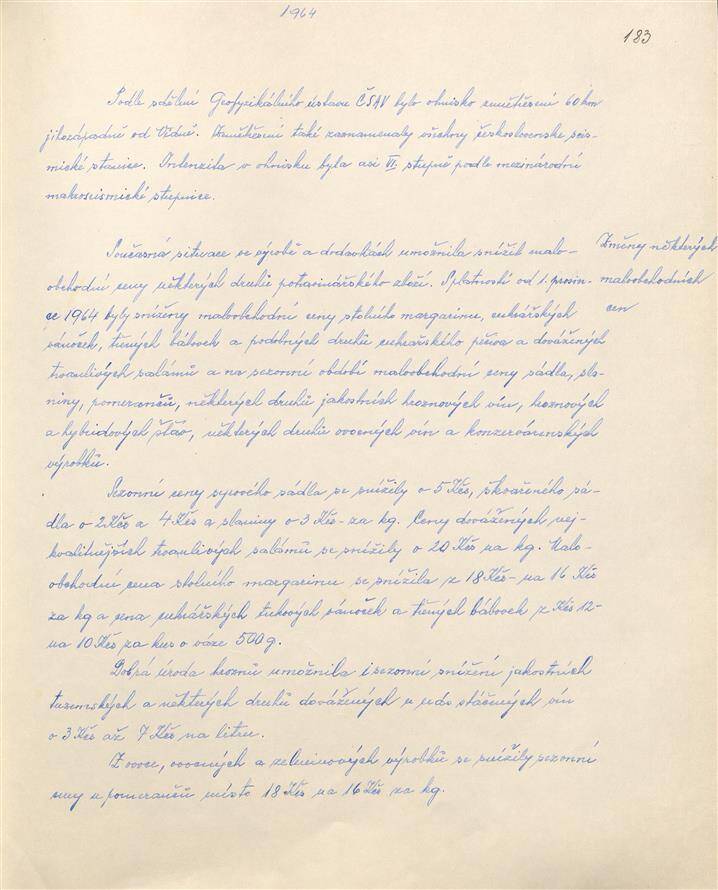 1964
183
Podle sdělení Geofyzikálního ústavu ČSAV bylo ohnisko zemětřesení 60 km
jihozápadně od Vídně. Zemětřesení také zaznamenaly všechny československé seis-
mické stanice. Intenzita v ohnisku byla asi VI. stupně podle mezinárodní
makroseismické stupnice.
Změny některých
maloobchodních
cen
Současná situace ve výrobě a dodávkách umožnila snížit malo-
obchodní ceny některých druhů potravinářského zboží. S platností od 1. prosin-
ce 1964 byly sníženy maloobchodní ceny stolního margarinu, cukrářských
vánoček, třených bábovek a podobných druhů cukrářského pečiva a dovážených
trvanlivých salámů a na sezonní období maloobchodní ceny sádla, sla-
niny, pomerančů, některých druhů jakostních hroznových vín, hroznových
a hybridových šťáv, některých druhů ovocných vín a konzervárenských
výrobků.
Sezonní ceny syrového sádla se snížily o 5 Kčs, škvařeného sá-
dla o 2 Kčs a 4 Kčs a slaniny o 3 Kčs- za kg. Ceny dovážených nej-
kvalitnějších trvanlivých salámů se snížily o 20 Kčs na kg. Malo-
obchodní cena stolního margarinu se snížila z 18 Kčs- na 16 Kčs
za kg a cena cukrářských tukových vánoček a třených bábovek z Kčs 12-
na 10 Kčs za kus o váze 500 g.
Dobrá úroda hroznů umožnila i sezonní snížení jakostních
tuzemských a některých druhů dovážených u nás stáčených vín
o 3 Kčs až 7 Kčs na litru.
Z ovoce, ovocných a zeleninových výrobků se snížily sezonní
ceny u pomerančů místo 18 Kčs na 16 Kčs za kg.